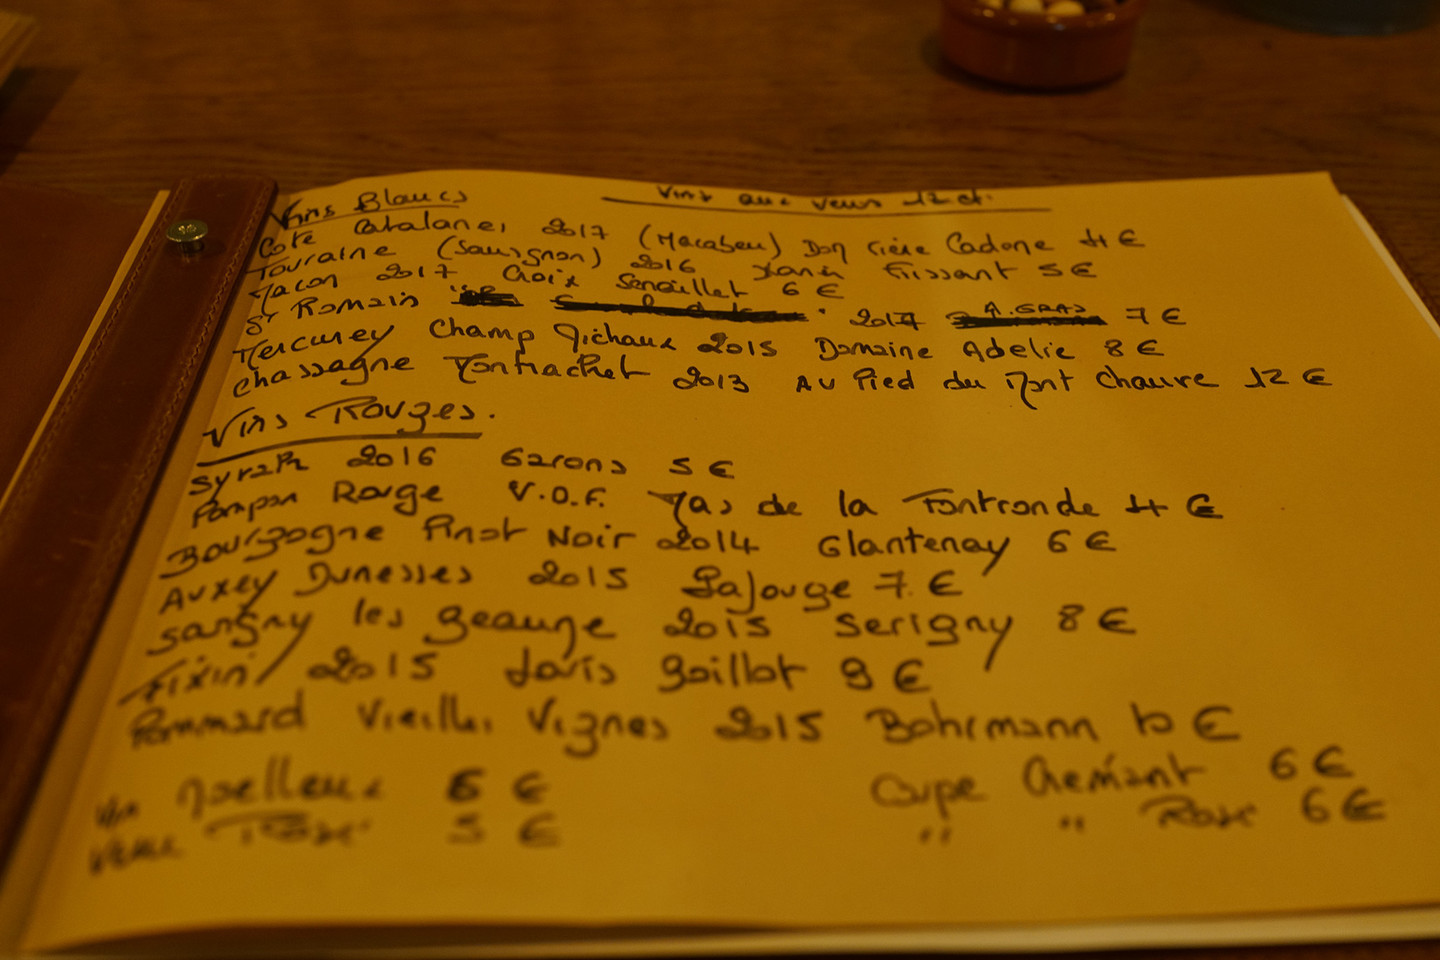 Vins aux verres 12 cl.
Vins Blancs
Cote Catalanes 2017 (Macabeu) Cadone 4 €
Touraine (Sauvignon) 2016 Xavier Frissant 5 €
Macon 2017 Croix Senaillet 6 €
St Romain 2017 A. GRAS 7 €
Mercurey Champ Michaux 2015 Domaine Adelie 8 €
Chassagne Montrachet 2013 Au Pied du Mont Chauve 12 €
Vins Rouges.
Syrah 2016 Garons 5 €
Pompon Rouge V.D.F. Mas de la Fontronde 4 €
Bourgogne Pinot Noir 2014 Glantenay 6 €
Auxey Duresses 2015 Lafouge 7 €
Savigny les Beaune 2015 Serigny 8 €
Fixin 2015 Louis Boillot 9 €
Pommard Vieilles Vignes 2015 Bohrmann 10 €
Vin Moelleux 6 € Coupe Crémant 6 €
Verre Rosé 5 € " " Rosé 6 €